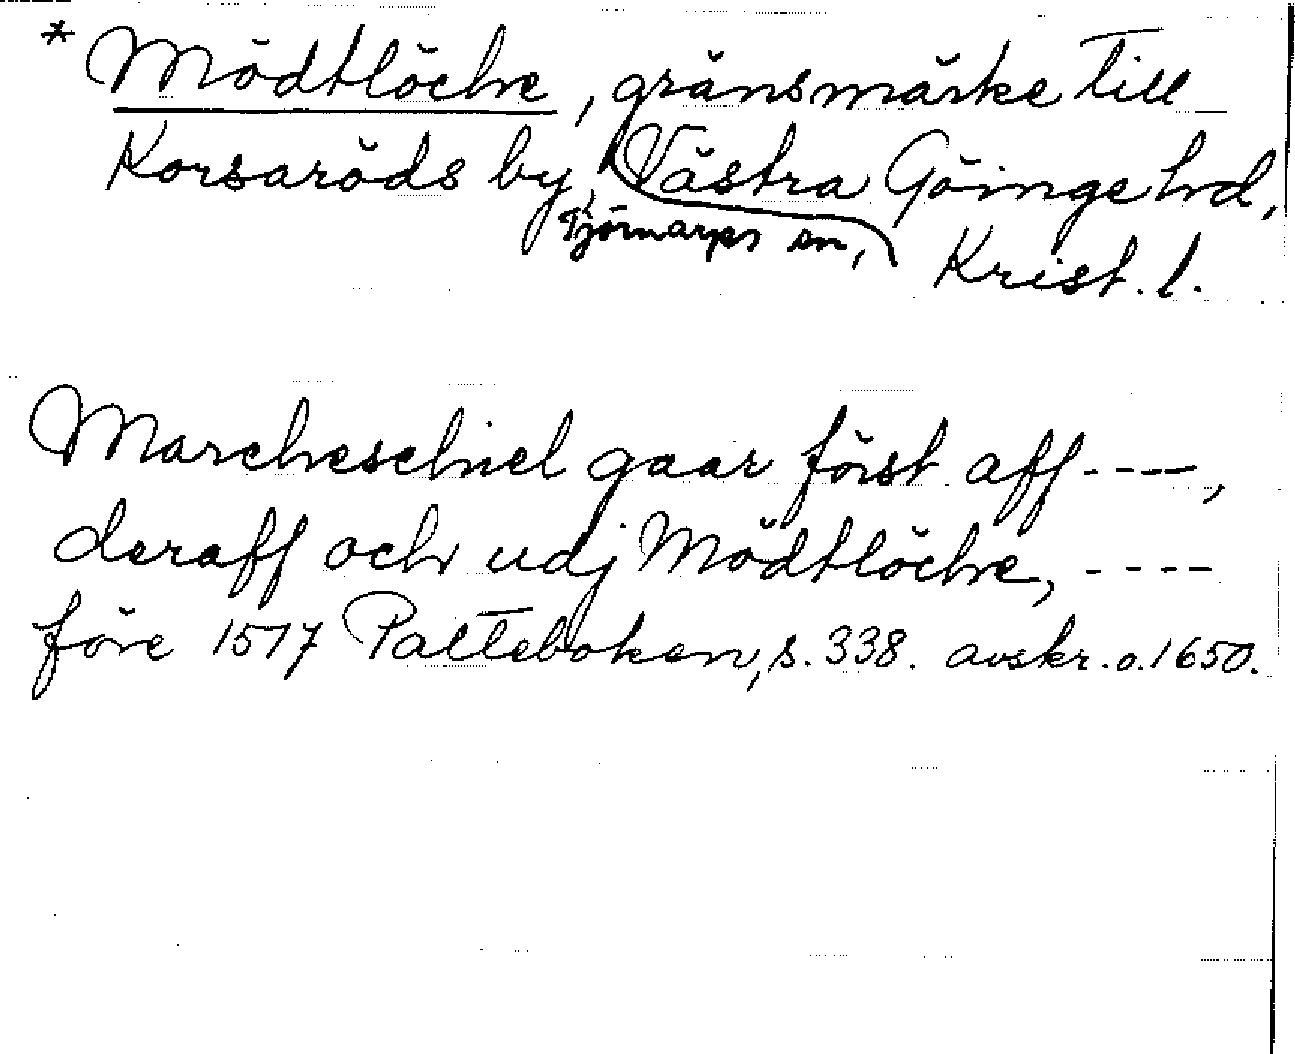 * Mödtlöche, gränsmärke till
Korsaröds by, Västra Göinge hd,
Tjörnarps sn,
Krist. l.
Marcheschiel gaar först aff ----,
deraff och udj Mödtlöche, ----
före 1517 Palteboken, s. 338. avskr. o. 1650.